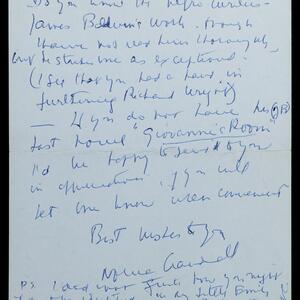 Do you know the negro writer
James Baldwin's work. Though
I have not read him thoroughly,
he strikes me as exceptional.
(I see that you had a hand in
furthering Richard Wright)
— If you do not have his (JB)
last novel "Giovanni's Room"
I'd be happy to send to you
in appreciation, if you will
let me know when convenient
Best wishes to you
P.S. I